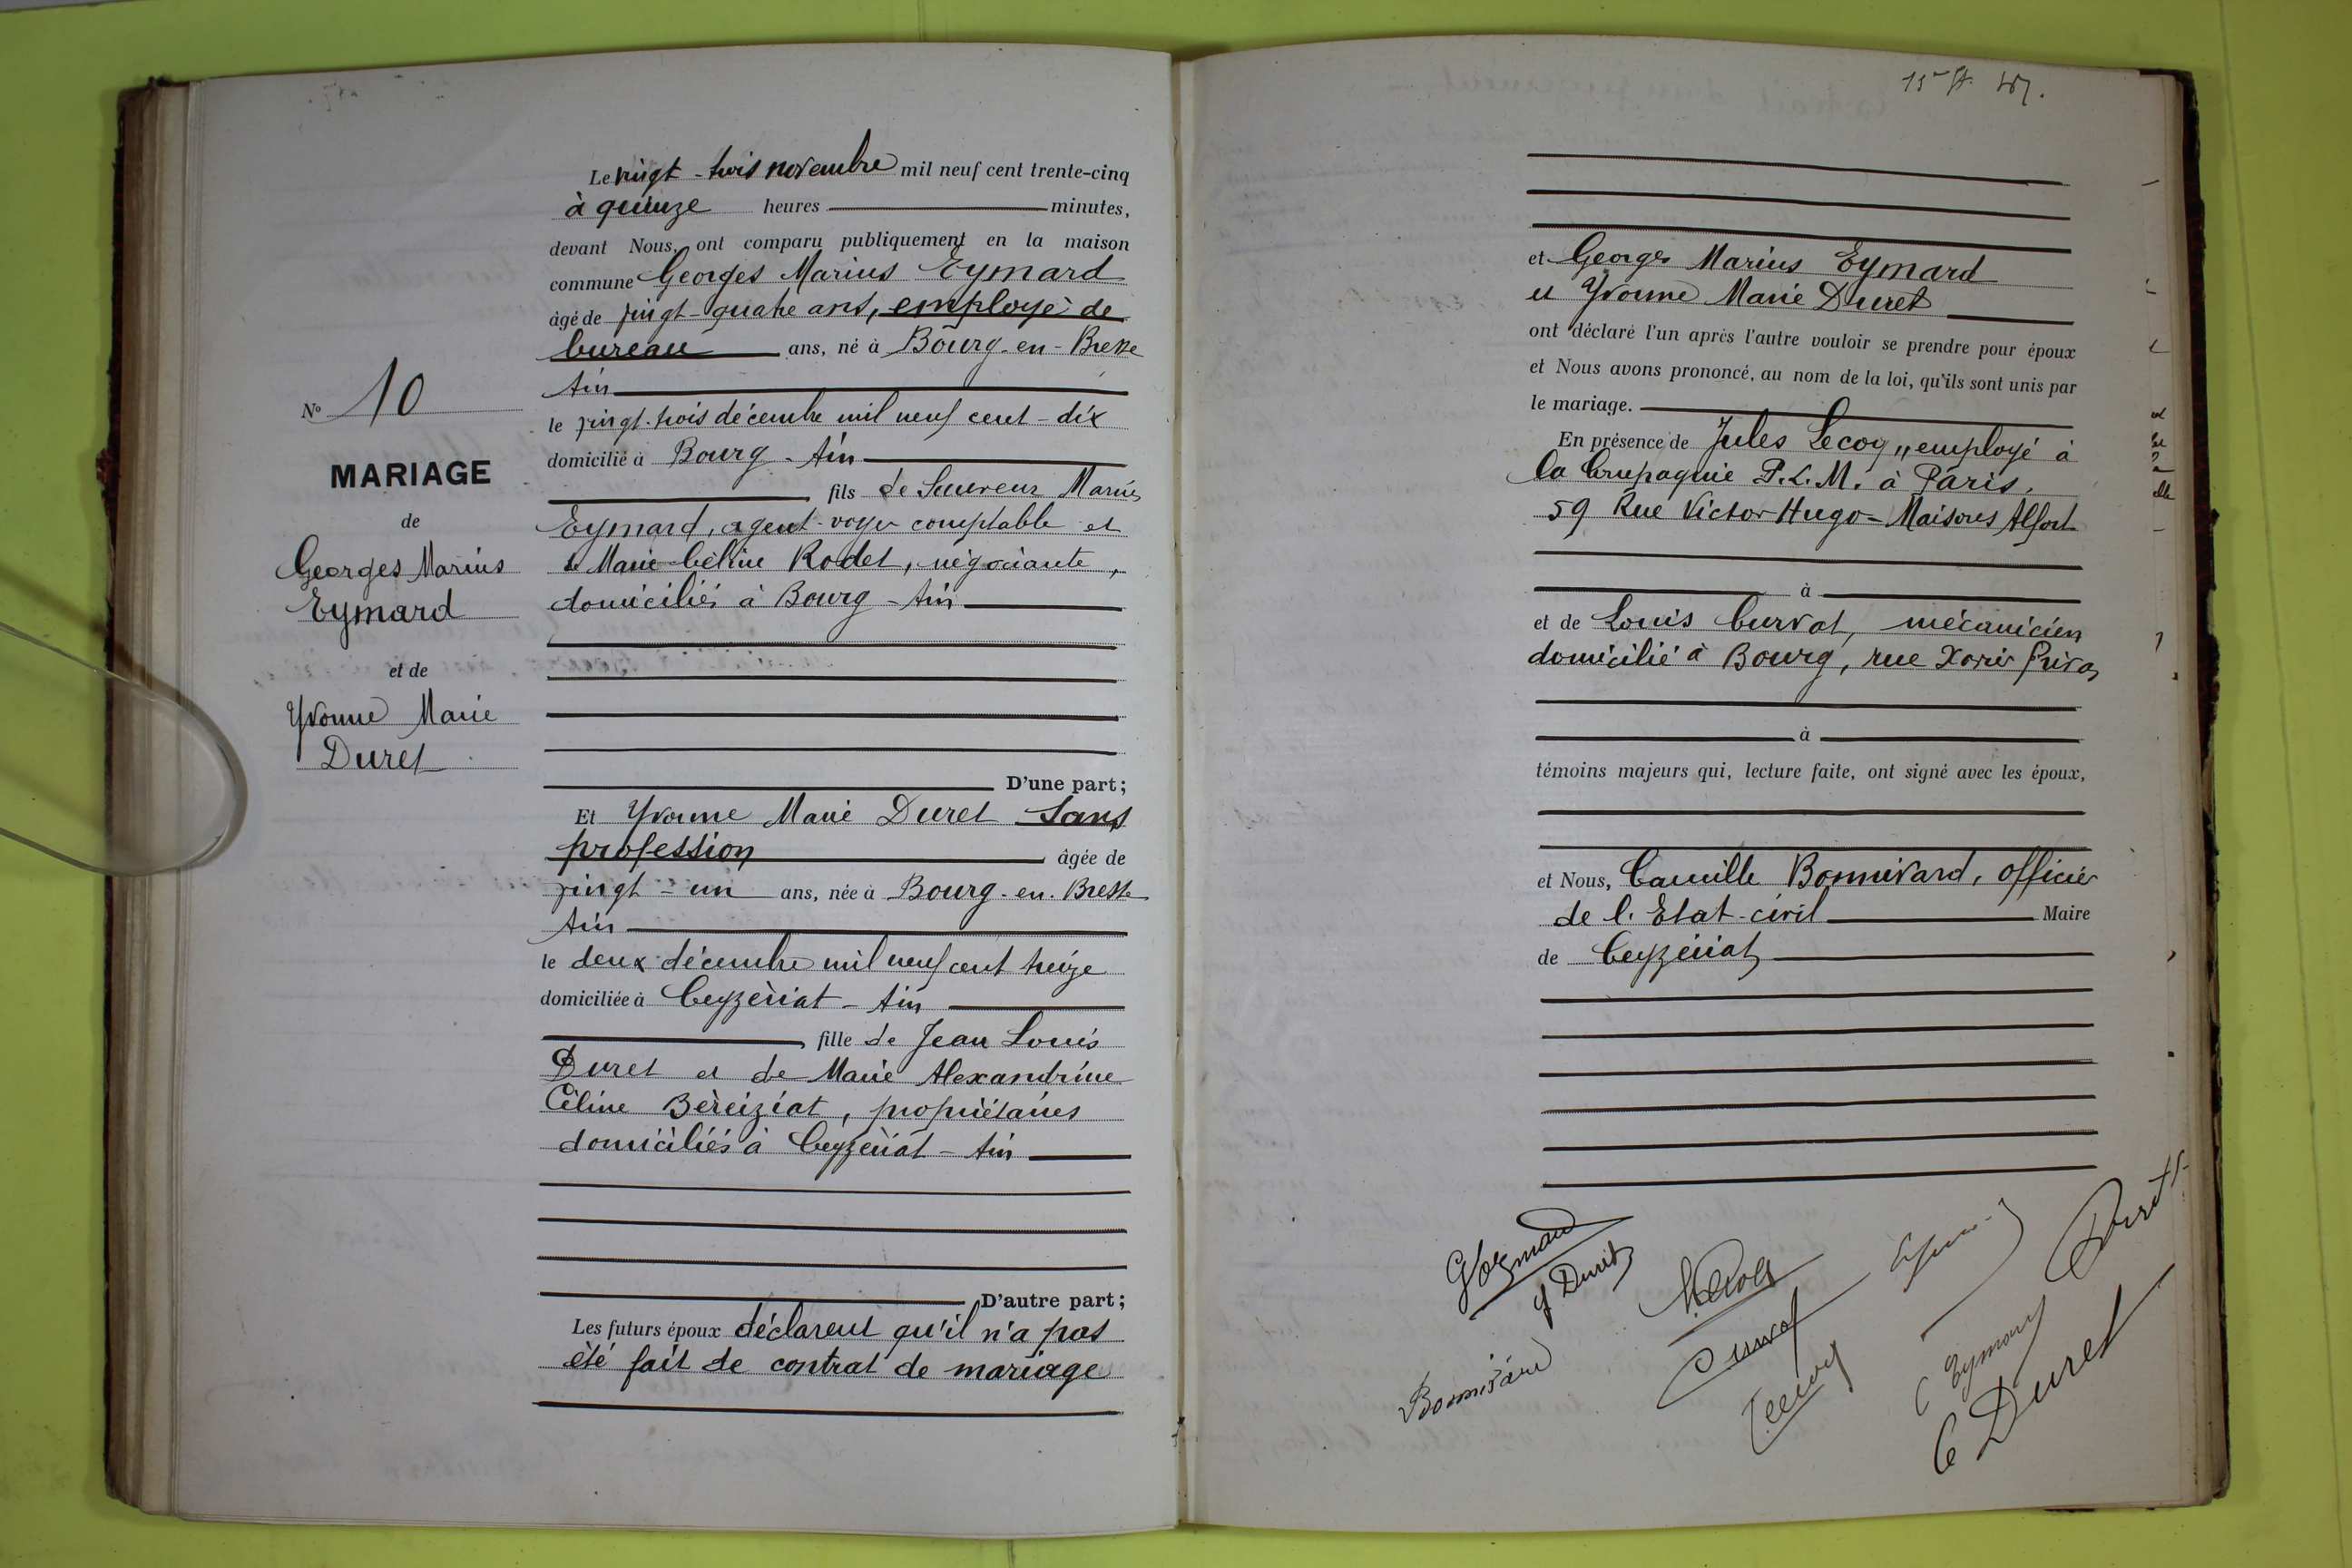 N° 10
MARIAGE
de
Georges Marius
Eymard
et de
Yvonne Marie
Duret
Le vingt-trois novembre mil neuf cent trente-cinq
à quinze heures minutes,
devant Nous, ont comparu publiquement en la maison
commune Georges Marius Eymard
âgé de vingt-quatre ans, employé de
bureau ans, né à Bourg-en-Bresse
Ain
le vingt-trois décembre mil neuf cent-dix
domicilié à Bourg-Ain
fils de Sauveur Marius
Eymard, agent-voyer comptable et
de Marie Céline Rodet, négociante,
domiciliés à Bourg-Ain
D'une part;
Et Yvonne Marie Duret Sans
profession âgée de
vingt-un ans, née à Bourg-en-Bresse
Ain
le deux décembre mil neuf cent treize
domiciliée à Ceyzériat-Ain
fille de Jean Louis
Duret et de Marie Alexandrine
Céline Béreiziat, propriétaires
domiciliés à Ceyzériat-Ain
D'autre part;
Les futurs époux déclarent qu'il n'a pas
été fait de contrat de mariage
et Georges Marius Eymard
et Yvonne Marie Duret
ont déclaré l'un après l'autre vouloir se prendre pour époux
et Nous avons prononcé, au nom de la loi, qu'ils sont unis par
le mariage.
En présence de Jules Lecoq, employé à
la Compagnie P.L.M. à Paris,
59 Rue Victor Hugo-Maisons Alfort
à
et de Louis Curvat, mécanicien
domicilié à Bourg, rue Xavier Privas
à
témoins majeurs qui, lecture faite, ont signé avec les époux,
et Nous, Camille Bonnivard, officier
de l'Etat-civil Maire
de Ceyzériat
G Eymard
Y Duret
Bonnivard
Curvat
Lecoq
C Eymard
Duret
C Duret